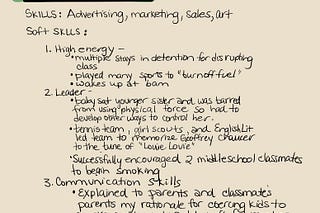 SKILLS: Advertising, marketing, sales, art
SOFT SKILLS:
1. High energy -
• multiple stays in detention for disrupting
class
• played many sports to "burn off fuel"
• wakes up at 6am
2. Leader -
• babysat younger sister and was barred
from using physical force so had to
develop other ways to control her.
• tennis team, girl scouts, and English Lit
led team to memorize Geoffrey Chaucer
to the tune of "Louie Louie"
• Successfully encouraged 2 middle school classmates
to begin smoking
3. Communication skills
• Explained to parents and classmates
parents my rationale for coercing kids to